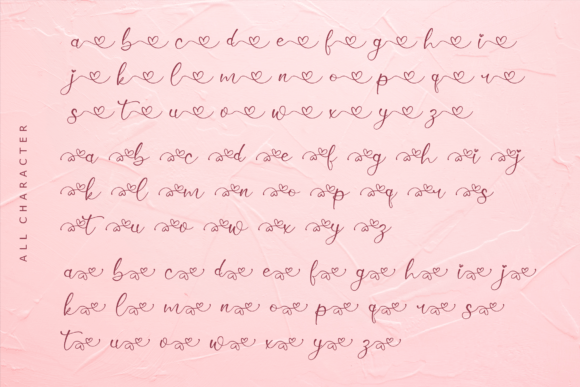 ALL CHARACTER
a b c d e f g h i
j k l m n o p q r
s t u o w x y z
a b c d e f g h i j
k l m n o p q r s
t u o w x y z
a b c d e f g h i j
k l m n o p q r s
t u o w x y z